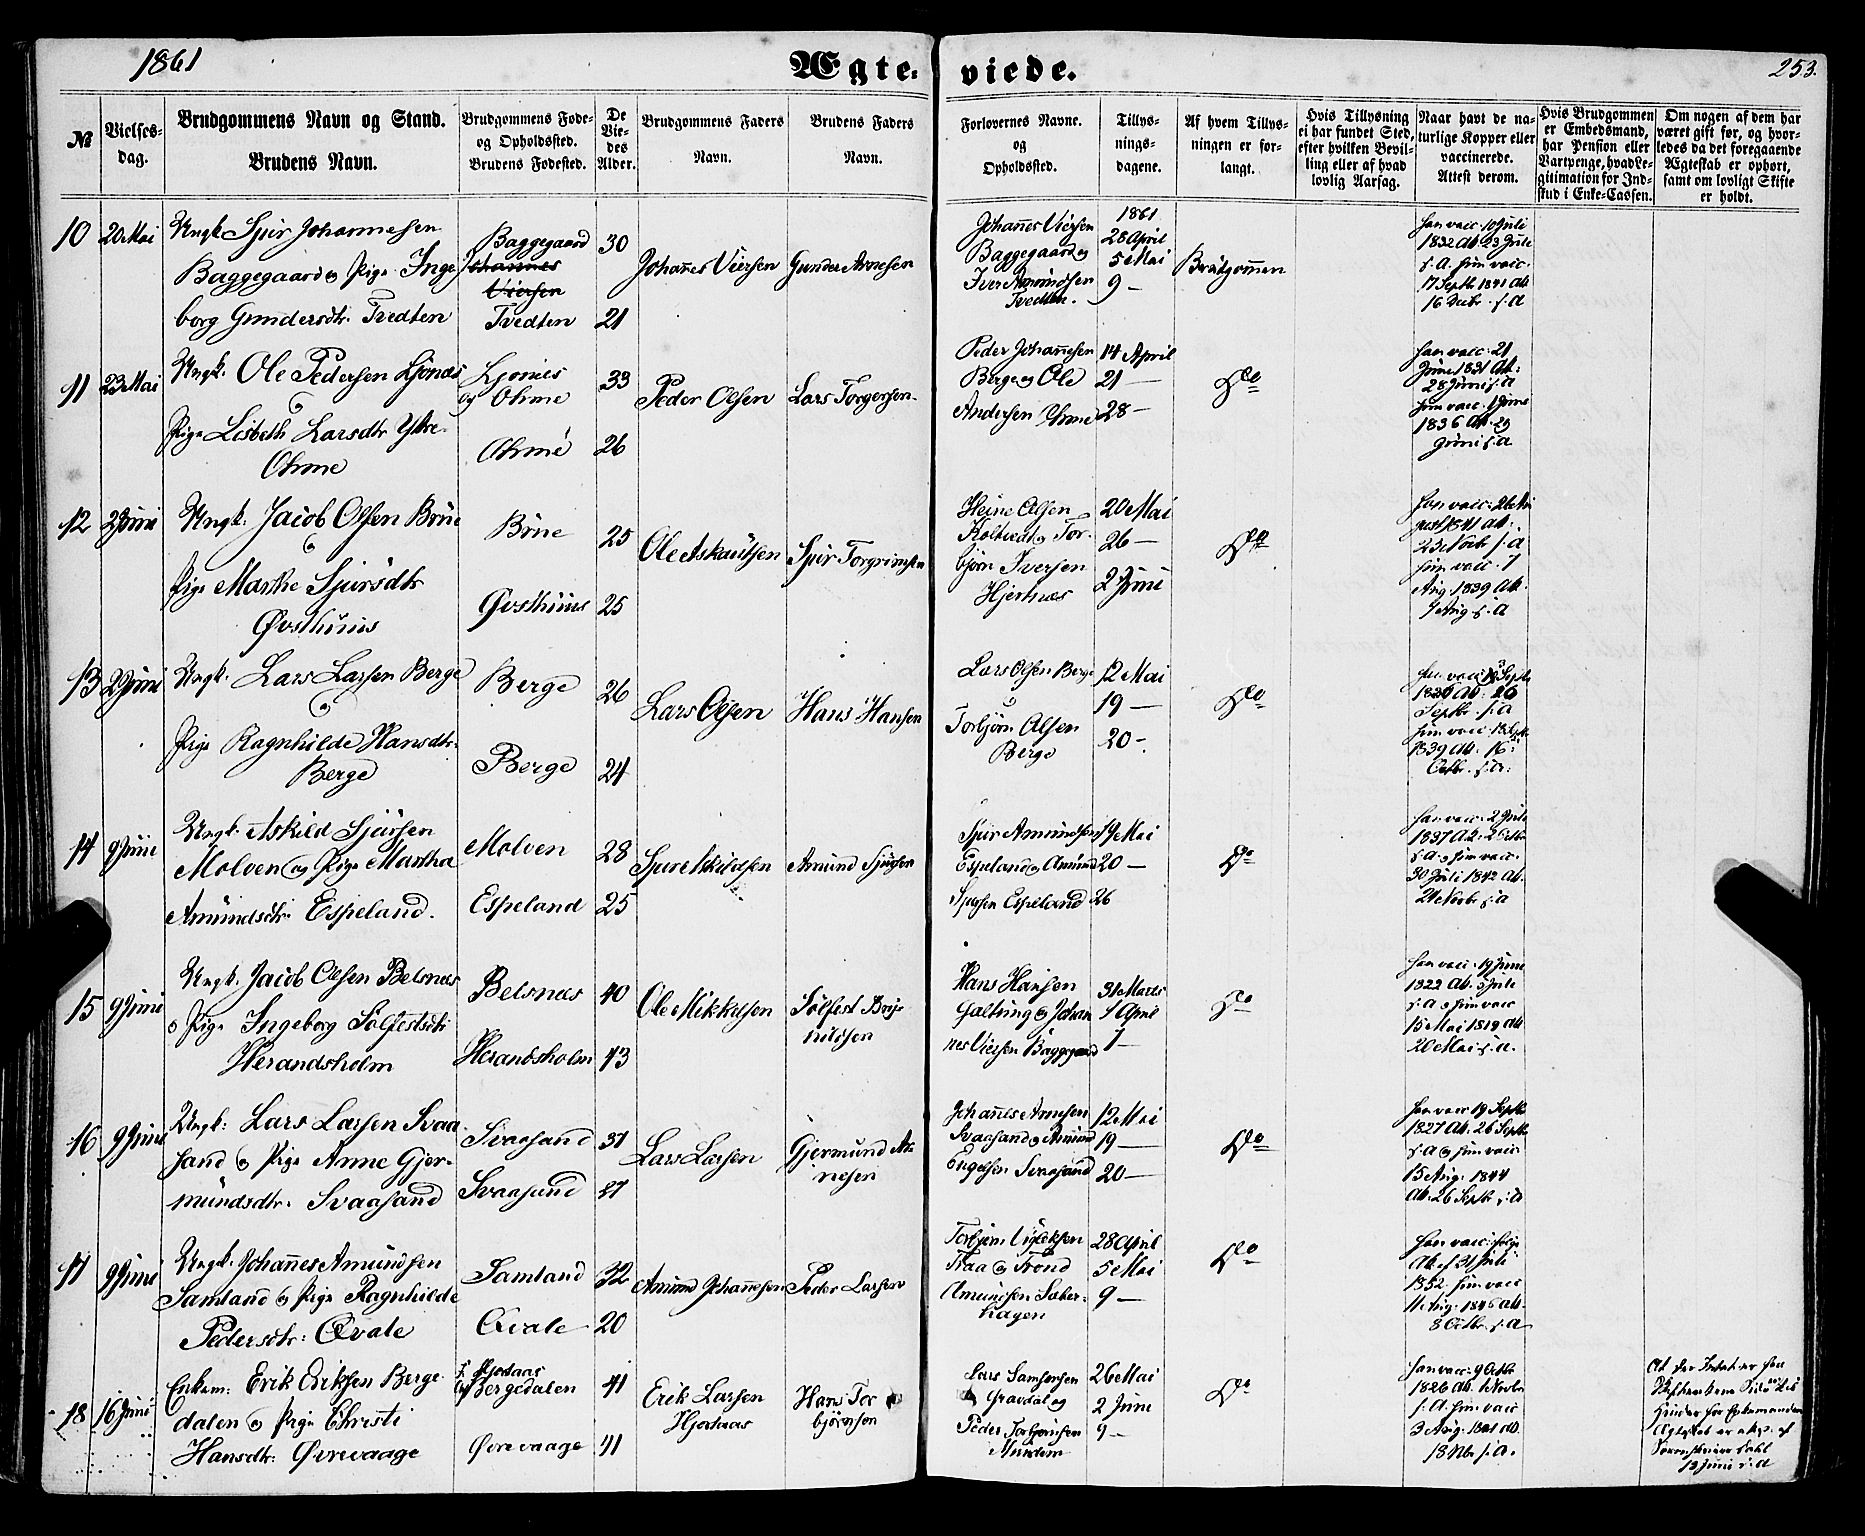 1861
Ægte-
viede.
253.
№
Vielses-
dag.
Brudgommens Navn og Stand.
Brudens Navn.
Brudgommens Føde-
og Opholdssted.
Brudens Fødested.
De
Vie-
des
Alder.
Brudgommens Faders
Navn.
Brudens Faders
Navn.
Forlovernes Navne.
og
Opholdssted.
Tillys-
nings-
dagene.
Af hvem Tillys-
ningen er for-
langt.
Hvis Tillysning
ei har fundet Sted,
efter hvilken Bevil-
ling eller af hvad
lovlig Aarsag.
Naar havt de na-
turlige Kopper eller
vaccinerede.
Attest derom.
Hvis Brudgommen
er Embedsmand,
har Pension eller
Vartpenge, hvad Le-
gitimation for Ind-
skud i Enke-Cassen.
Om nogen af dem har
været gift før, og hvor-
ledes da det foregaaende
Ægteskab er ophørt,
samt om lovligt Skifte
er holdt.
10 20 Mai
Ungk. Sjur Johannesen
Baggegaard og Pige Inge
borg Gundersdtr. Tvedten
Baggegaard
Johannes
Viersen
Tvedten
30
21
Johannes Viersen
Gunder Arnesen
Johannes Viersen
Baggegaard og
Iver Amundsen
Tvedten.
1861
28 April
5 Mai
9 —
Brudgommen
han vacc. 10 Juli
1832 Att. 23 Juli
s. A. hun vacc.
17 Septb. 1841 Att.
16 Decbr. s. A
11 23 Mai
Ungk. Ole Pedersen Ljonæs
og
Pige Lisbeth Larsdtr. Ytre-
Ohme
Ljonæs
og Ohme
Ohme
33
26
Peder Olsen
Lars Torgersen
Peder Johannesen
Berge og Ole
Andersen Ohme
14 April
21 —
28 —
Do
han vacc. 21
Juni 1831 Att:
28 Juni s. A
hun vacc. 1 Juni
1836 Att. 29
Juni s. A
12 2 Juni
Ungk. Jacob Olsen Brue
og
Pige Marthe Sjursdtr
Øvsthuus
Brue
Øvsthuus
25
25
Ole Askautsen
Sjur Torgrimsen
Heine Olsen
Koltvedt og Tor-
bjørn Iversen
Hjertnæs
20 Mai
26 —
2 Juni
Do
han vacc. 26 Au
gust 1841 Att.
23 Novbr. s. A
hun vacc. 7
Aug. 1839 Att.
7 Aug. s. A
13 2 Juni
Ungk. Lars Larsen Berge
og
Pige Ragnhilde Hansdtr.
Berge
Berge
Berge
26
24
Lars Olsen
Hans Hansen
Lars Olsen Berge
Torbjørn Olsen
Berge
12 Mai
19 —
20 —
Do
Septbr. s. A
1839 Att. 16
Octbr. s. A.
14 9 Juni
Ungk. Askild Sjursen
Molven og Pige Martha
Amundsdtr. Espeland.
Molven
Espeland
28
25
Sjur Askildsen
Amund Sjursen
Sjur Amundsen
Espeland og Amund
Sjursen Espeland
19 Mai
20 —
26
Do
han vacc. 2 Juli
s. A. og hun vacc.
30 Juli 1842 Att.
21 Novbr. s. A
15 9 Juni
Ungk. Jacob Olsen Belsnæs
og Pige Ingeborg Solfestsdtr
Herandsholm
Belsnæs
Herandsholm
40
43
Ole Mikkelsen
Solfest Bry-
nildsen
Hans Hansen
Galtung og Johan
nes Viersen Baggegaard
31 Marts
1 April
7 —
Do
han vacc. 19 Juni
1822 Att. 5 Juli
s. A. og hun vacc
15 Mai 1819 Att.
20 Mai s. A.
16 9 Juni
Ungk. Lars Larsen Svaa-
sand og Pige Anne Gjer-
mundsdtr. Svaasand
Svaasand
Svaasand
37
Lars Larsen
Gjermund Ar-
nesen
Johannes Arnesen
Svaasand og Amund
Engelsen Svaasand
12 Mai
19 —
20 —
Do
han vacc. 19 Septbr
1827 Att. 26 Septbr
s. A og hun vacc
15 Aug. 1844
Att. 26 Septbr. s. A
17 9 Juni
Ungk. Johannes Amundsen
Samland og Pige Ragnhilde
Pedersdtr. Qvale
Samland
Qvale
32
20
Amund Johannesen
Peder Larsen
Traa og Trond
Amundsen Soker-
hagen
28 April
5 Mai
9 —
Do
han vacc. ifølge
Att. af 31 Juli
1852 hun vacc
11 Aug. 1846 Att.
8 Octbr. s. A
18 16 Juni
Enkem. Erik Eriksen Berge-
dalen og Pige Christi
Hansdtr. Øvrevaage
Bergedalen
Øvrevaage
41
41
Erik Larsen
Hjortaas
Hans Tor
bjørnsen
Lars Samsonsen
Gravdal og
Peder Torbjørnsen
26 Mai
2 Juni
9 —
Do
han vacc. 9 Octbr
1826 Att. Novbr
s. A. hun vacc
3 Aug. 1821 Att.
s. A.
At der Intet er fra
Skifterettens Side til
Hinder for Enkemandens
Ægteskab er att. af
13 Juni s. A